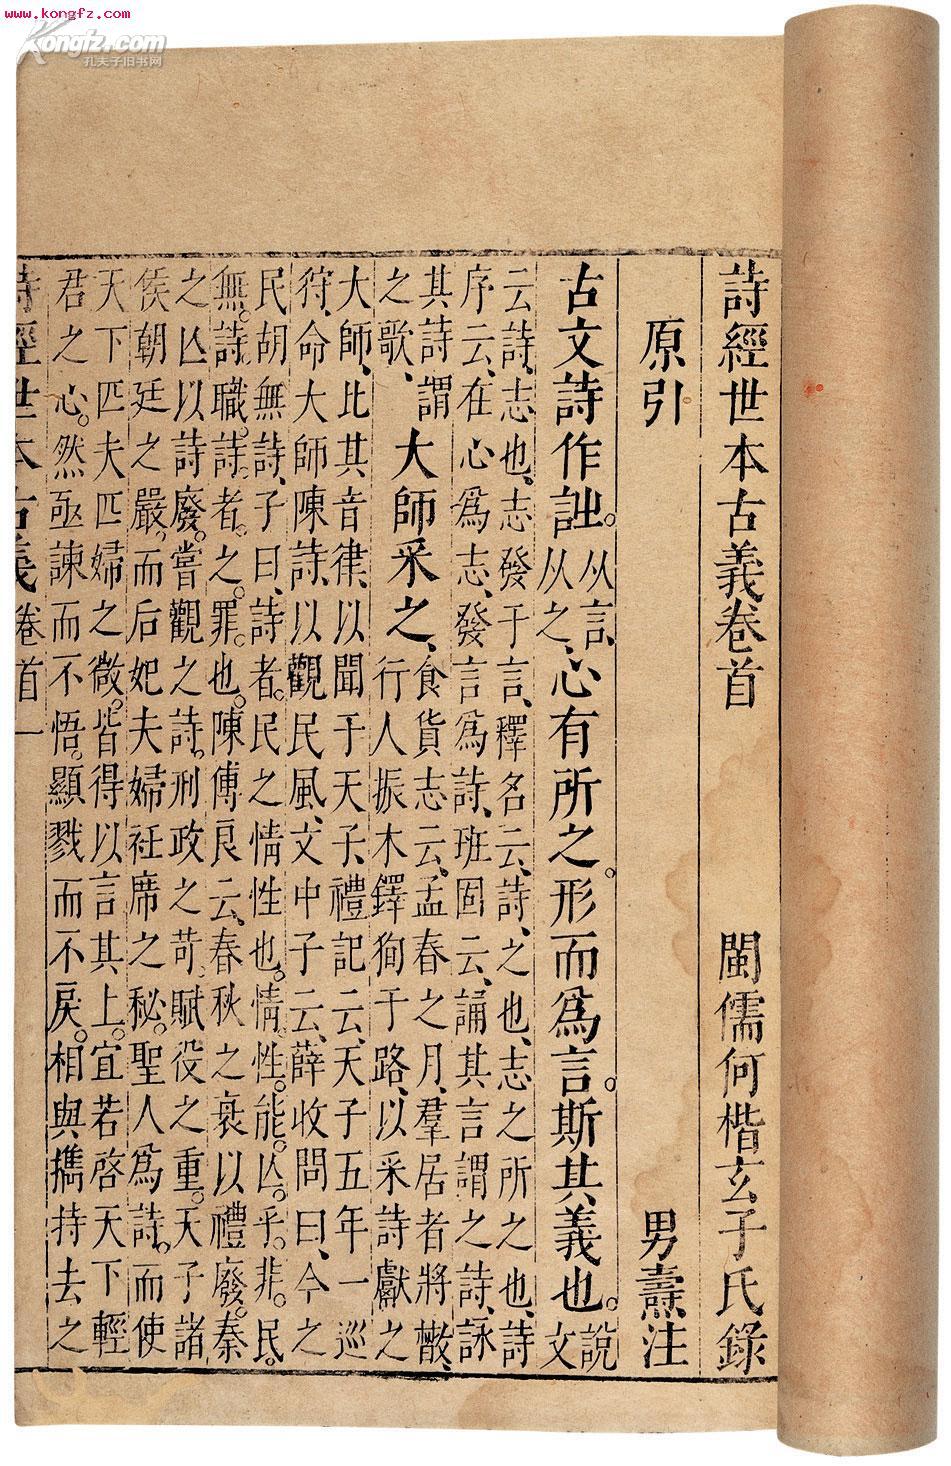 www.kongfz.com
Kongfz.com
孔夫子旧书网
詩經世本古義卷首 閩儒何楷玄子氏錄
原引 男燾注
古文詩作𧥳。从言、从之、心有所之。形而爲言。斯其義也。說文
云、詩、志也、志發于言、釋名云、詩、之也、志之所之也、詩
序云、在心爲志、發言爲詩、班固云、誦其言謂之詩、詠
其詩謂之歌、大師采之、食貨志云、孟春之月、羣居者將散、
行人振木鐸狥于路、以采詩獻之
大師、比其音律、以聞于天子、禮記云、天子五年一巡
狩、命大師陳詩、以觀民風、文中子云、薛收問曰、今之
民胡無詩、子曰、詩者。民之情性也。情。性。能。亡。乎。非。民。
無。詩。職。詩。者。之。罪。也。陳傅良云、春秋之衰以禮廢。秦
之亡以詩廢。嘗觀之詩。刑政之苛。賦役之重。天子諸
侯朝廷之嚴。而后妃夫婦衽席之秘。聖人爲詩。而使
天下匹夫匹婦之微。皆得以言其上。宜若啓天下輕
君之心。然亟諫而不悟。顯戮而不戾。相與攜持去之
詩經世本古義 卷首 一